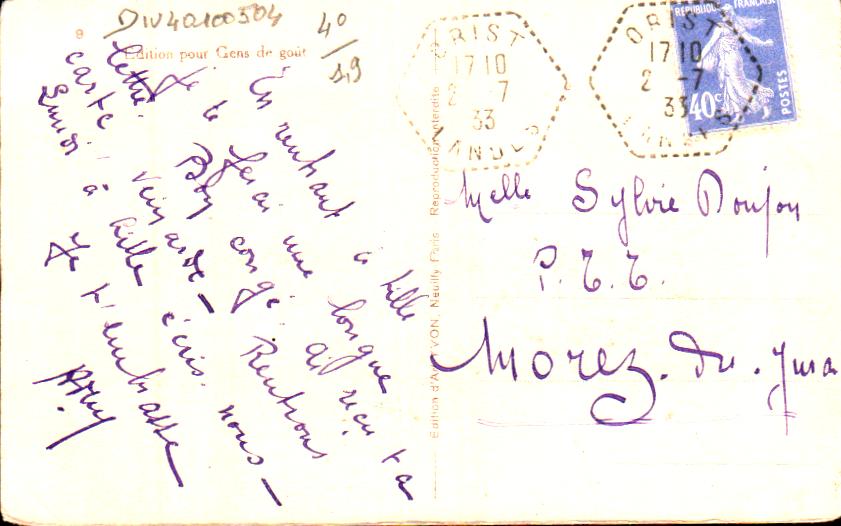 DIV40100504
40
/
19
9
Edition pour Gens de goût
En rentrant à Lille
Je te ferai une longue
lettre. Bon congé. Ai reçu ta
carte. Rentrons
Lundi à Lille écris. nous-
Je t'embrasse
Reproduction interdite
Édition d'Art YVON, Neuilly Paris
ORIST
17 10
2 -7
33
LANDES
ORIST
17 10
2 -7
33
LANDES
RÉPUBLIQUE FRANÇAISE
40c
POSTES
Melle Sylvie Doujon
P.T.T.
Morez. du. Jura